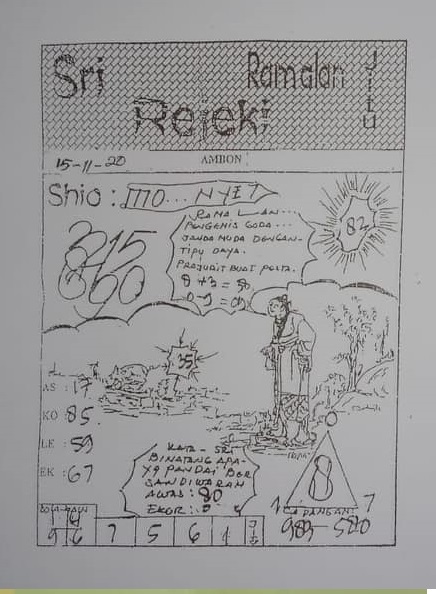 Sri Ramalan Jitu
Rejeki
15-11-20 AMBON
Shio : MO...NYET
3215
RAMALAN...
PENGEMIS GODA...
JANDA MUDA DENGAN-
TIPU DAYA.
PRAJURIT BUAT PESTA.
82
35
AS : 17
KO 85
LE : 59
EK : 67
KATA - SRI
BINATANG APA-
YG PANDAI BER
SANDIWARAH
AWAS : 80
EKOR :
8
1 7
CADANGAN
9 6 7 5 6 1